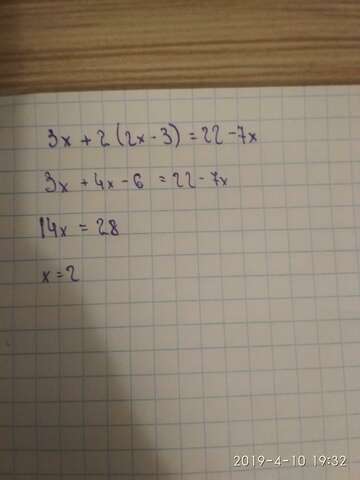 3x + 2 (2x - 3) = 22 - 7x
3x + 4x - 6 = 22 - 7x
14x = 28
x = 2
2019-4-10 19:32